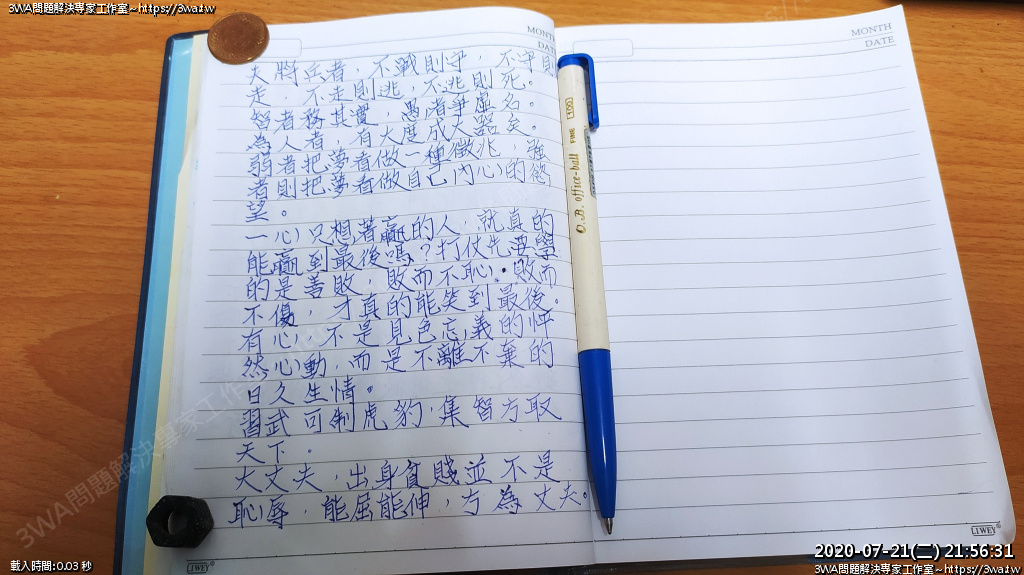 3WA問題解決專家工作室~https://3wa.tw
3WA問題解決專家工作室~https://3wa.tw
MONTH
DATE
MONTH
DATE
大將兵者，不戰則守，不守則
走，不走則逃，不逃則死。
智者務其實，愚者爭虛名。
為人者，有大度成大器矣。
弱者把夢看做一種徵兆，強
者則把夢看做自己內心的慾
望。
一心只想著贏的人，就真的
能贏到最後嗎？打仗先要學
的是善敗，敗而不恥，敗而
不傷，才真的能笑到最後。
有心，不是見色忘義的怦
然心動，而是不離不棄的
日久生情。
習武可制虎豹，集智方取
天下。
大丈夫，出身貧賤並不是
恥辱，能屈能伸，方為丈夫。
O.B. office-ball FINE 100
LIWEY
LIWEY
3WA問題解決專家工作室
載入時間:0.03 秒
2020-07-21(二) 21:56:31
3WA問題解決專家工作室~https://3wa.tw